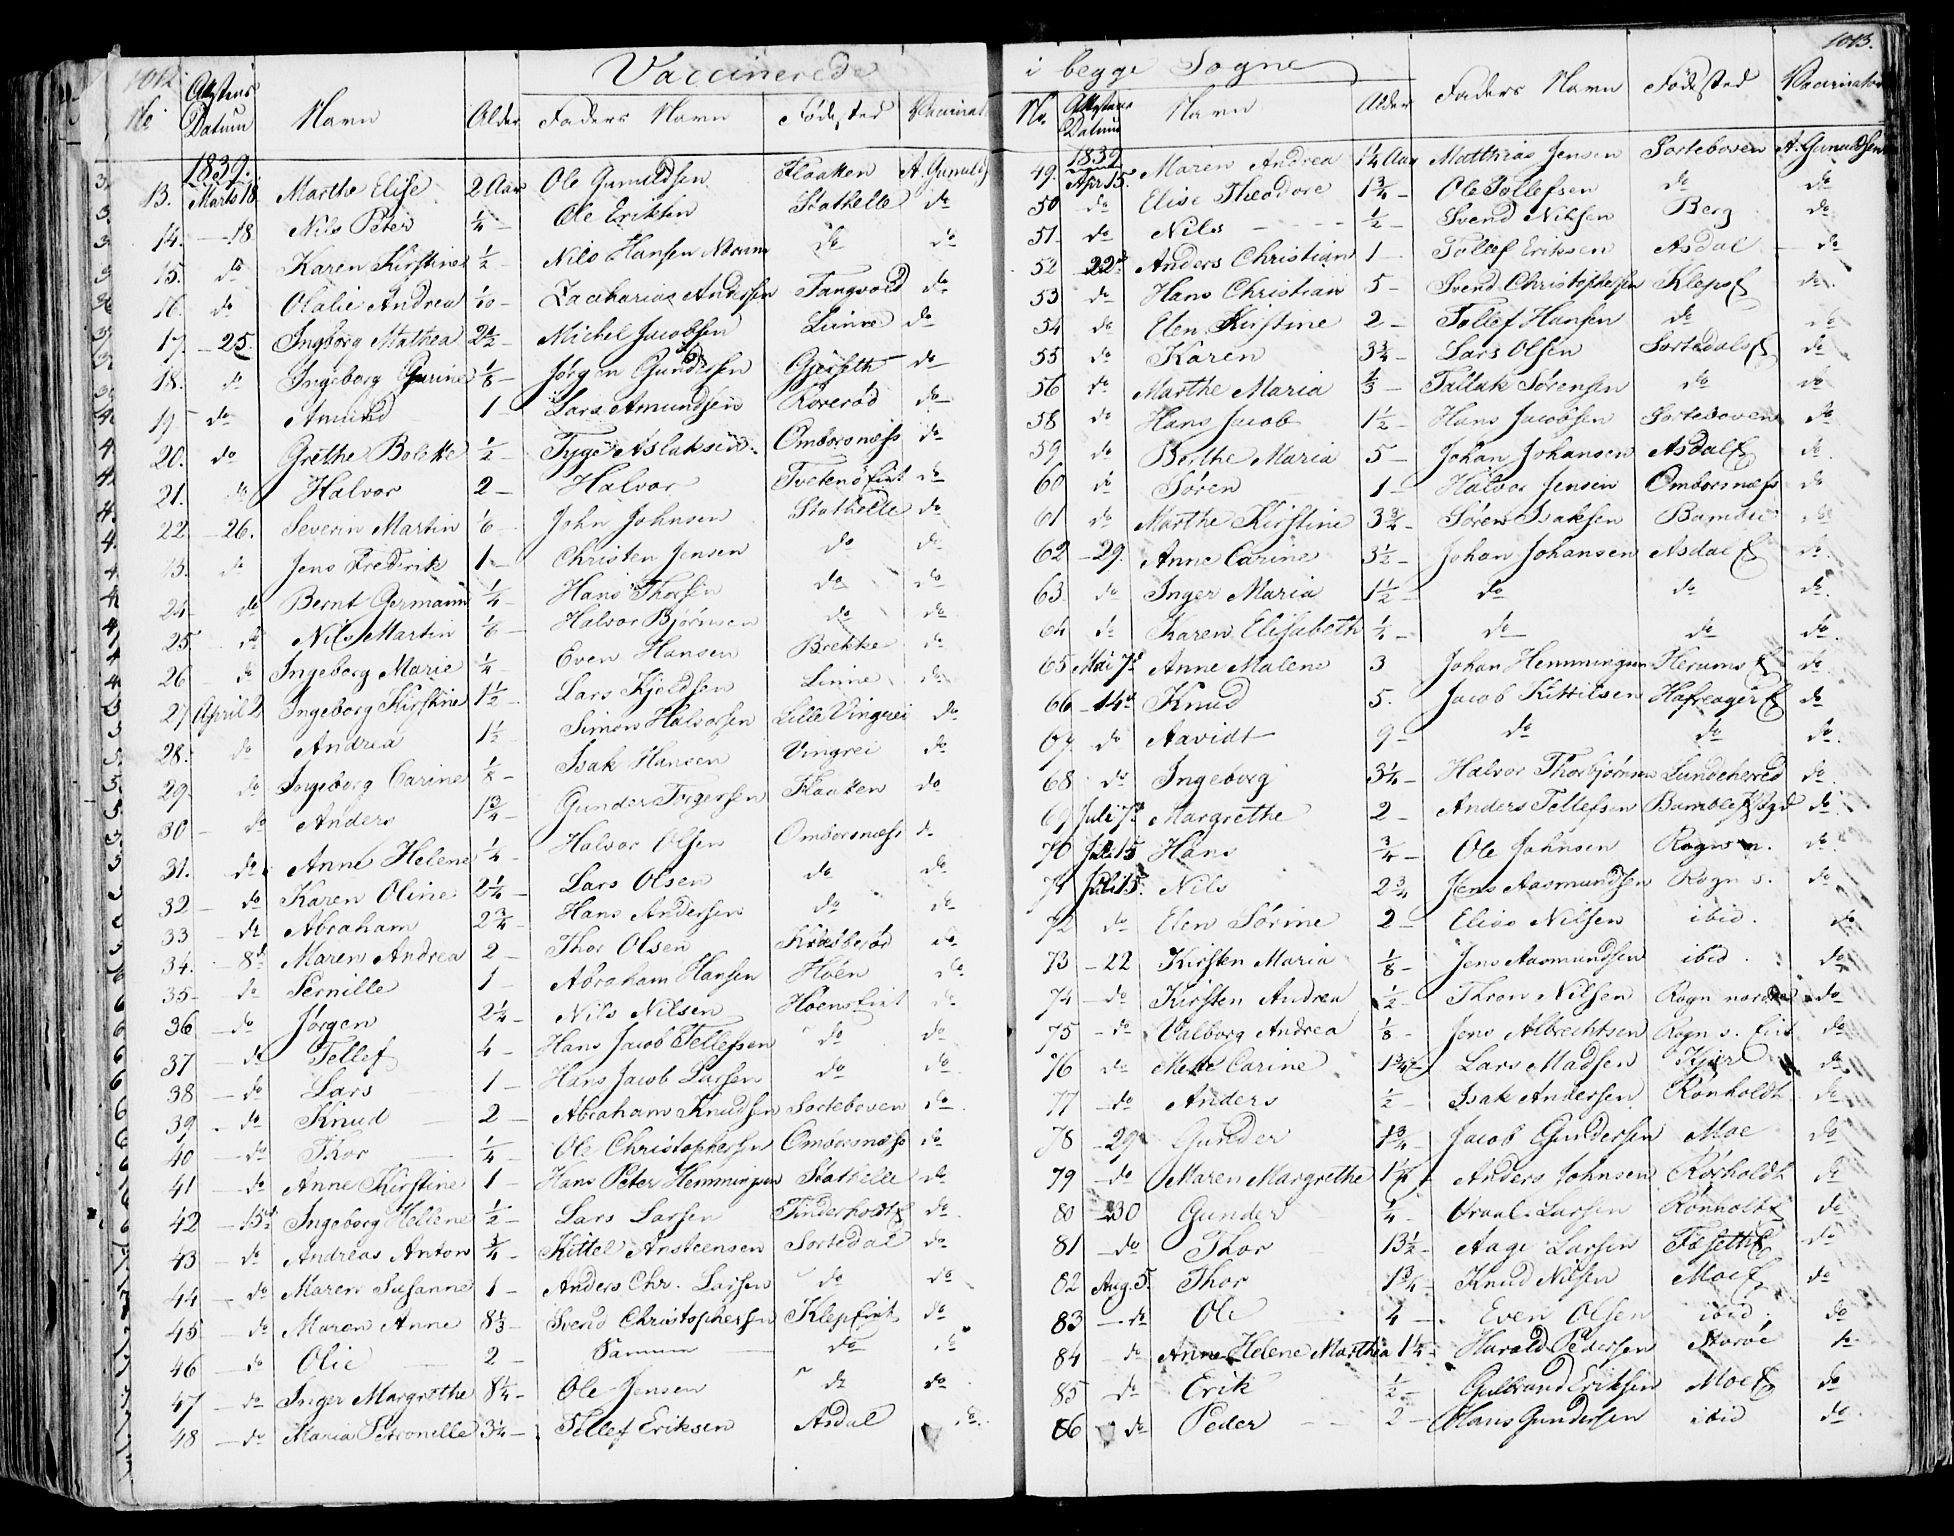 1012.
Vaccinerede
No Attestens Datum Navn Alder Faders Navn Fødested Vaccinat
1839.
13. Marts 18 Marthe Elise 2 Aar Ole Gunuldsen Flaaken A. Gunulds
14. — 18 Nils Peter ¼ — Ole Eriksen Stathelle do
15. do Karen Kirstine ½ — Nils Hansen do do
16. do Olalie Andrea 1/10 — Zacharias Andersen Tangvald do
17. — 25. Ingborg Mathea 2½ — Michel Jacobsen Linne do
18. do Ingeborg Gurine ⅛ — Jørgen Gundersen Gjerseth do
19 do Amund 1 — Lars Amundsen Rørerød do
20. do Grethe Bolette ½ — Tyge Aslaksen Omborsnæss do
21. do Halvor 2 — Halvor Tvetenøfiet do
22. — 26. Severin Martin 1/6 — John Johnsen Stathelle do
23. do Jens Fredrik 1 — Christen Jensen do do
24 do Bernt Germann ¼ — Hans Thorsen do do
25 do Nils Martin 1/6 — Halvor Bjørnsen do do
26 — do Ingeborg Marie ¼ — Even Hansen Brekke do
27 April 2 Ingeborg Kirstine 1½ — Lars Kjeldsen Linne do
28. do Andrea 1½ — Simon Halvorsen Lille Vingrei do
29. do Ingeborg Carine ⅛ — Isak Hansen Vingrei do
30 — do Anders 1¾ — Gunder Torgersen Flaaken do
31. — do Anne Helene ¼ — Halvor Olsen Omborsnæss do
32 — do Karen Oline 2¼ — Lars Olsen do do
33 — do Abraham 2¾ — Hans Andersen do do
34. — 8d Maren Andrea 2 — Thor Olsen do
35 — do Pernille 1 — Abraham Hansen Høen do
36 — do Jørgen 2¼ — Nils Nilsen Høensfiet do
37 — do Tellef 4 — Hans Jacob Tellefsen do do
38 — do Lars 1 — Hans Jacob Larsen do do
39 — do Knud 2 — Abraham Knudsen Torteboven do
40 — do Thor ¼ — Ole Christophersen Omborsnæss do
41 — do Anne Kirstine 1 — Hans Peter Hemmingsen Stathelle do
42 — 15de Ingeborg Hellene ½ — Lars Larsen Tinderholt do
43 — do Andreas Anton ¾ — Kittel Ansteensen Sortedal do
44 — do Maren Susanne 1 — Anders Chr. Larsen do do
45 — do Maren Anne 8⅓ — Svend Christophersen Klepfiet do
46 — do Olie 2 — Samme do do
47 — do Inger Margrethe 8¼ — Ole Jensen do do
48 — do Maria Petronelle 3¼ — Tellef Eriksen Asdal do
1013.
i begge Sogne
No. Attestens Datum Navn Alder Faders Navn Fødested Vaccinator
1839
49. Apr 15. Maren Andrea 1¼ Aar Matthias Jensen Sorteboven A. Gunuldsen
50 do Elise Theodore 1¾ — Ole Tollefsen do do
51 do Nils ½ — Svend Nilsen Berg do
52 — 22d Anders Christian 1 — Tollef Eriksen Asdal do
53 do Hans Christian 5 — Svend Christophersen Klepf do
54 do Elen Kirstine 2 — Tollef Hansen do do
55 do Karen 3¾ — Lars Olsen Sortedalsf do
56 do Marthe Maria ⅓ — Tallak Sørensen do do
58 do Hans Jacob 1½ — Hans Jacobsen Sorteboven do
59 do Berthe Maria 5 — Johan Johansen Asdalf do
60 do Søren 1 — Halvor Jensen Omborsnæss do
61 do Marthe Kirstine 3¾ — Søren Isaksen Bamble do
62 — 29. Anne Carine 3½ — Johan Johansen Asdalf do
63 do Inger Maria 1½ — do do do
64 do Karen Elisabeth ¼ — do do do
65 Mai 7d Anne Malene 3 Johan Hemmingsen Herumsf do
66 — 14d Knud 5. Jacob Kittilsen Hafreagerf do
67 do Aavidt 9 — do do do
68 do Ingeborg 3¼ — Halvor Thorbjørnsen Lundehered do
69 Juli 7d Margrethe 2 — Anders Tellefsen Bamble Prgd do
70 Juli 15 Hans ¾ — Ole Johnsen Rogn n. do
71 Juli 15. Nils 2¾ Jens Aasmundsen Rogn s. do
72 do Elen Sørine 2 — Elias Nilsen ibid. do
73 — 22 Kirsten Maria ⅛ — Jens Aasmundsen ibid. do
74 — do Kirsten Andrea ½ — Thron Nilsen Rogn nordre do
75 — do Valborg Andrea ⅛ Jens Albrechtsen Rogn s. fiet do
76 — do Mette Carine 1¾ — Lars Madsen Kjær do
77 — do Anders ½ — Isak Andersen Rønholdt do
78 — 29 Gunder 1¾ — Jacob Gundersen Moe do
79 — do Maren Margrethe 1¼ Anders Johnsen Rørholdt do
80 — 30 Gunder ¼ — Larsen Rønholt do
81 — do Thor 13½ — Aage Larsen do
82 Aug. 5. Thor 1¾ — Knud Nilsen Moef do
83 — do Ole 4 — Even Olsen ibid. do
84 — do Anne Helene Marthea 1¼ — Harald Pedersen Storøe do
85 — do Erik ½ — Gulbrand Eriksen Moef do
86 do Peder 2 — Hans Gundersen ibid do